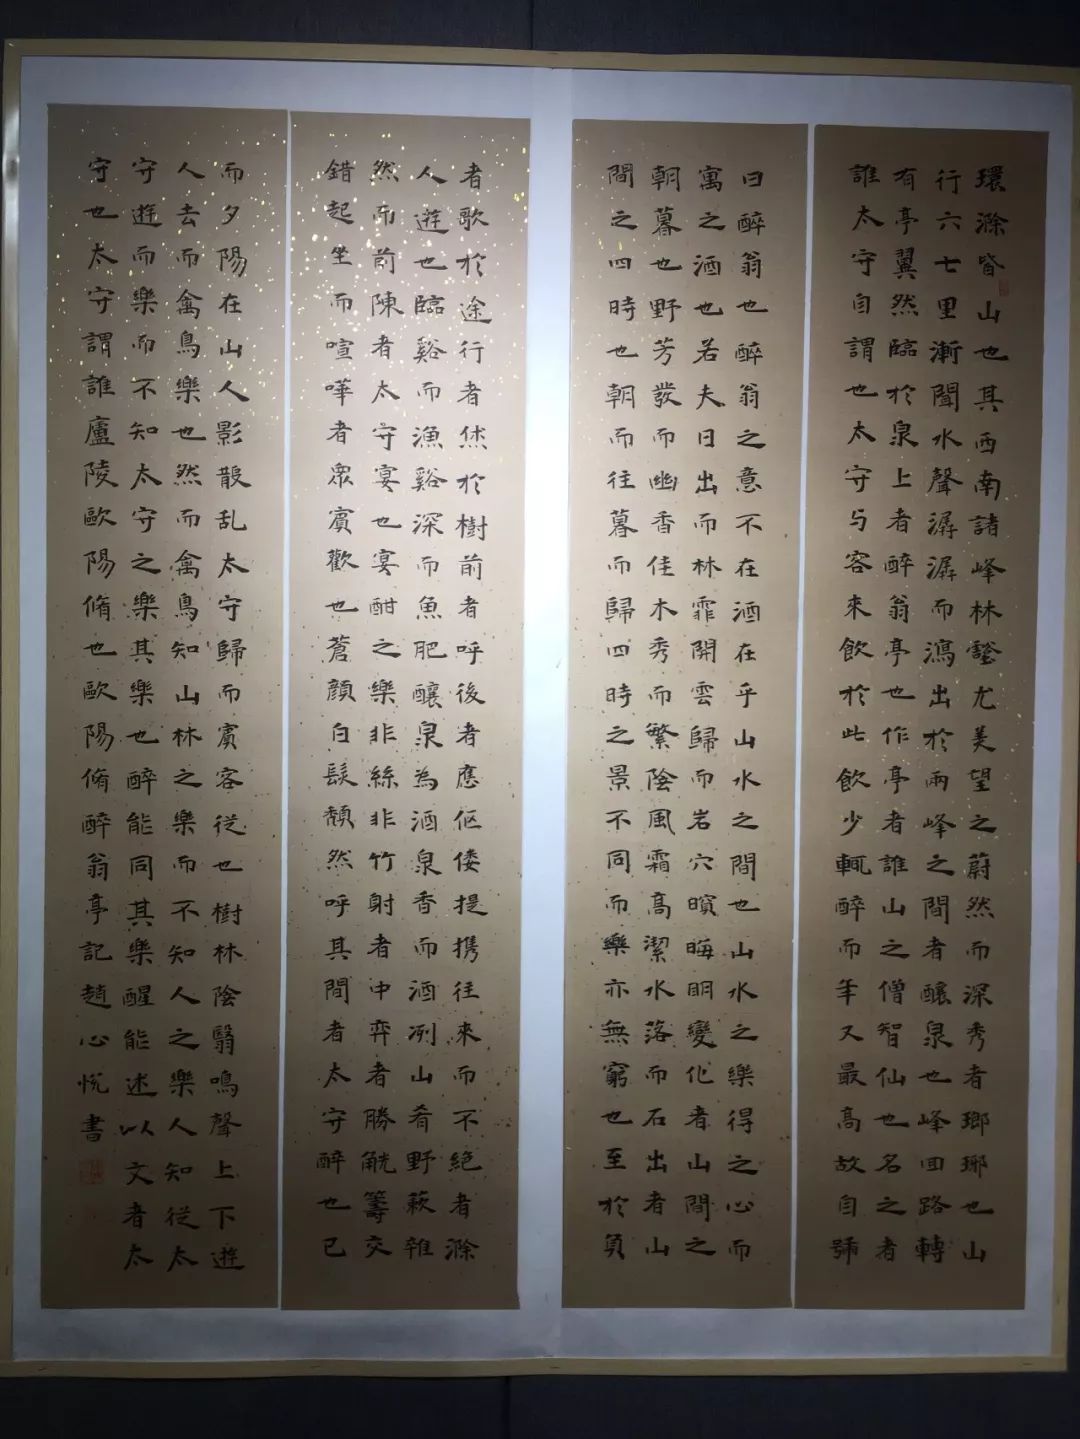 環滁皆山也其西南諸峰林壑尤美望之蔚然而深秀者瑯琊也山
行六七里漸聞水聲潺潺而瀉出於兩峰之間者釀泉也峰回路轉
有亭翼然臨於泉上者醉翁亭也作亭者誰山之僧智仙也名之者
誰太守自謂也太守与客來飲於此飲少輒醉而年又最高故自號
曰醉翁也醉翁之意不在酒在乎山水之間也山水之樂得之心而
寓之酒也若夫日出而林霏開雲歸而岩穴暝晦明變化者山間之
朝暮也野芳發而幽香佳木秀而繁陰風霜高潔水落而石出者山
間之四時也朝而往暮而歸四時之景不同而樂亦無窮也至於負
者歌於途行者休於樹前者呼後者應傴僂提携往來而不絕者滁
人遊也臨谿而漁谿深而魚肥釀泉為酒泉香而酒冽山肴野蔌雜
然而前陳者太守宴也宴酣之樂非絲非竹射者中弈者勝觥籌交
錯起坐而喧嘩者眾賓歡也蒼顏白髮頹然呼其間者太守醉也已
而夕陽在山人影散乱太守歸而賓客從也樹林陰翳鳴聲上下遊
人去而禽鳥樂也然而禽鳥知山林之樂而不知人之樂人知從太
守遊而樂而不知太守之樂其樂也醉能同其樂醒能述以文者太
守也太守謂誰廬陵歐陽脩也歐陽脩醉翁亭記趙心悅書